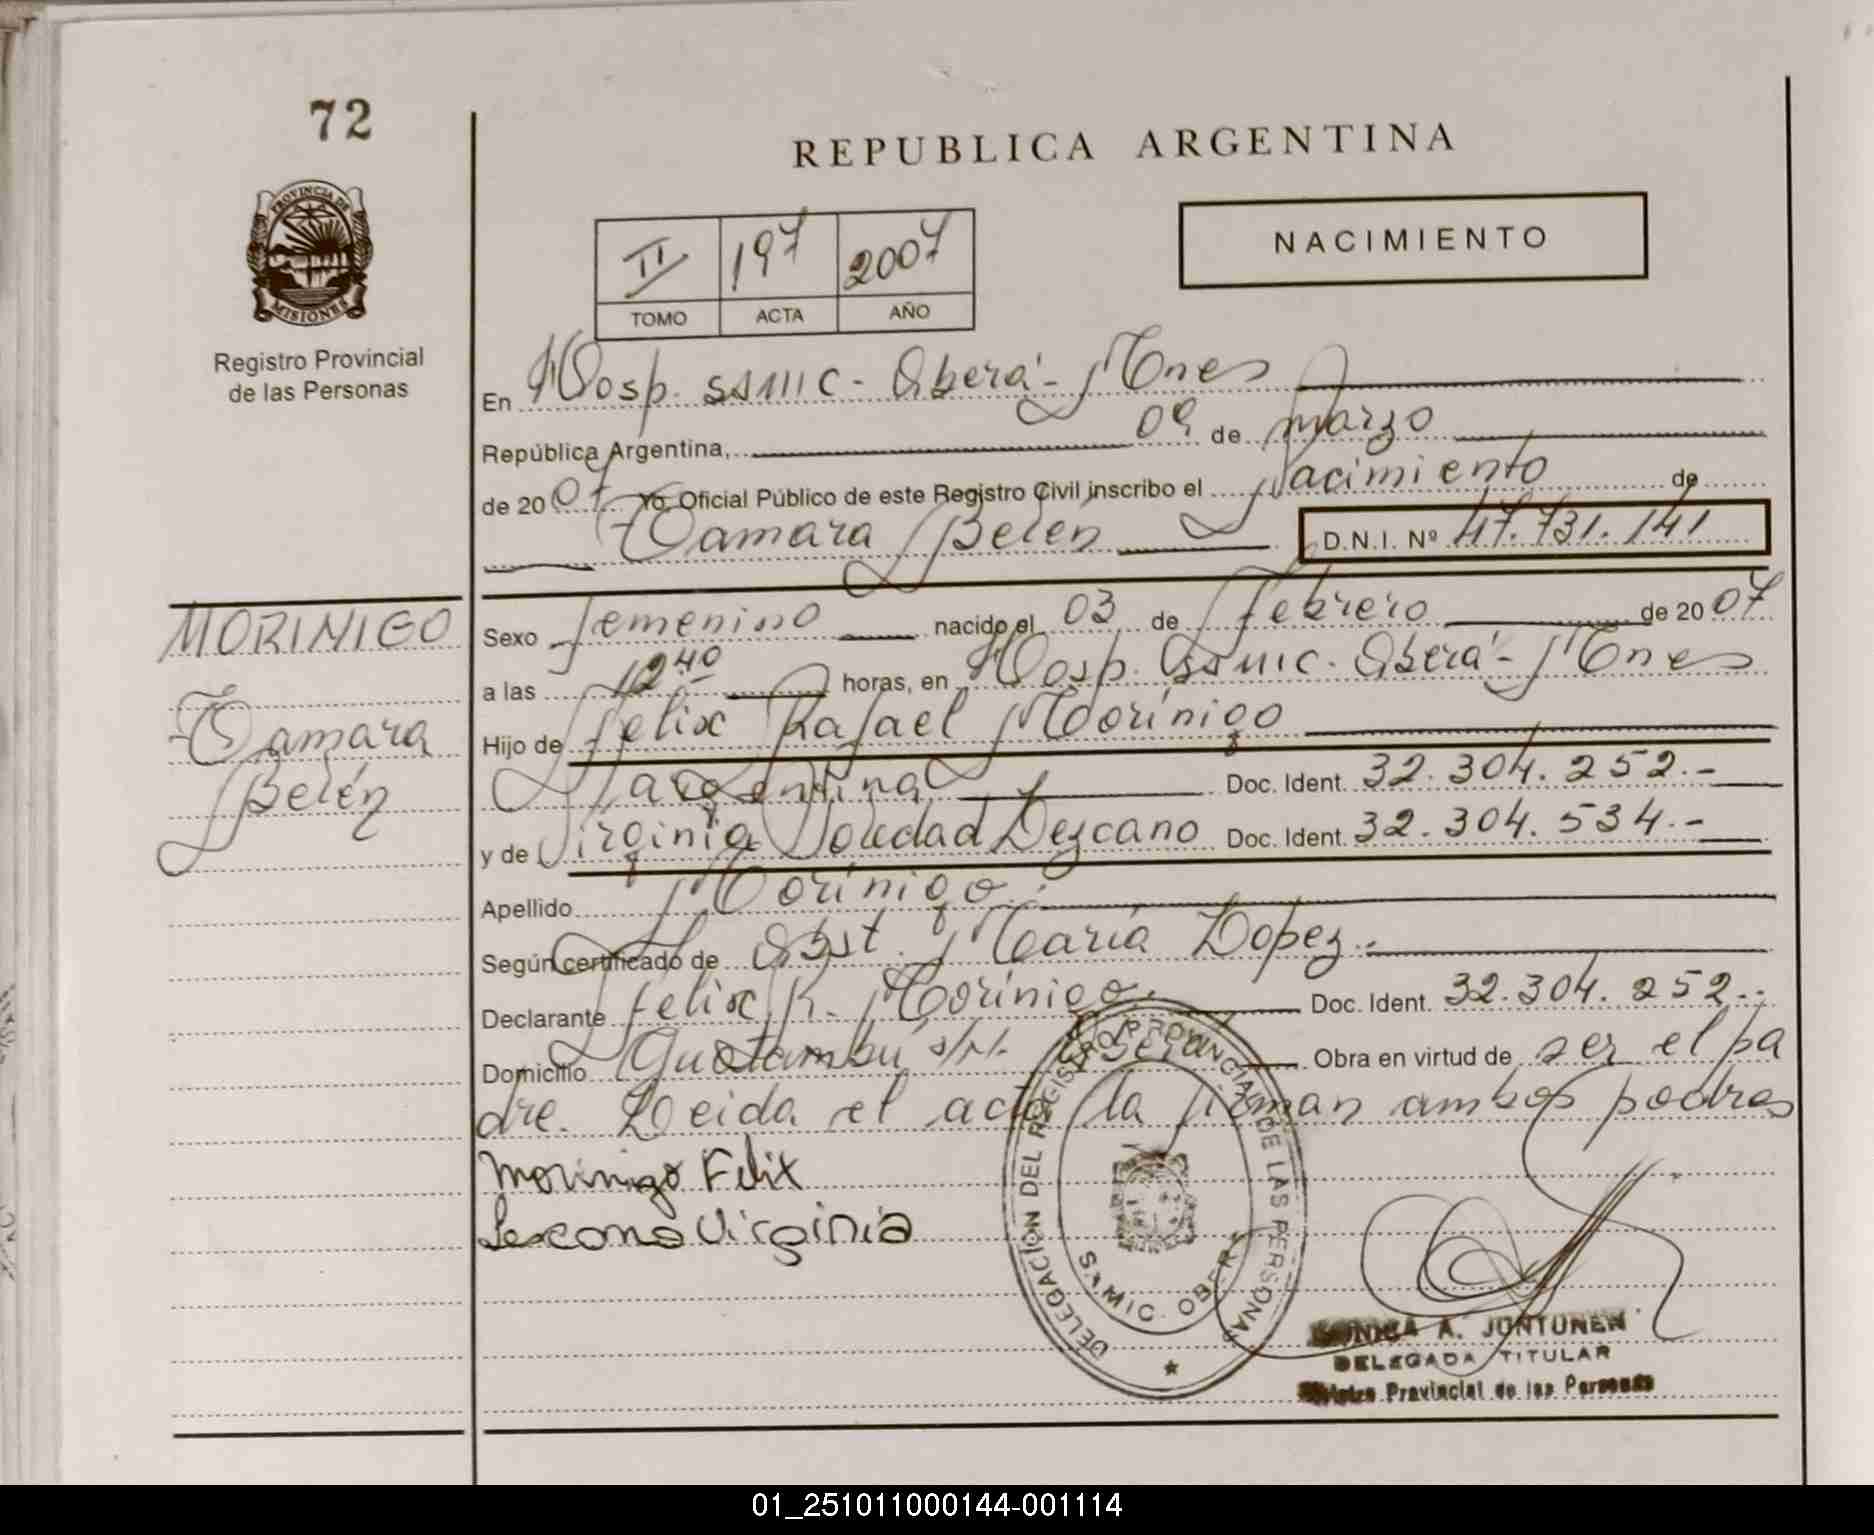 72
REPUBLICA ARGENTINA
PROVINCIA DE
MISIONES
Registro Provincial
de las Personas
NACIMIENTO
II 197 2007
TOMO ACTA AÑO
En Hosp. SAMIC - Oberá - Mnes
República Argentina, 09 de marzo
de 2007 Yo, Oficial Público de este Registro Civil inscribo el Nacimiento de
Tamara Belén D.N.I. Nº 47.731.141
MORINIGO
Tamara
Belén
Sexo femenino nacido el 03 de febrero de 2007
a las 12 40 horas, en Hosp. SAMIC. Oberá - Mnes
Hijo de Felix Rafael Morínigo
argentina Doc. Ident. 32.304.252.-
y de Virginia Soledad Lezcano Doc. Ident. 32.304.534.-
Apellido Morínigo.
Según certificado de Obst. María Lopez.-
Declarante Felix R. Morínigo.- Doc. Ident. 32.304.252.-
Domicilio Guatambú s/n. Oberá Obra en virtud de ser el pa
dre. Leida el acta la firman ambos padres
Morinigo Felix
Lescano Virginia
DELEGACION DEL REGISTRO PROVINCIAL DE LAS PERSONAS
SAMIC. OBERA
A. JONTUNEN
DELEGADA TITULAR
Provincial de las Personas
01_251011000144-001114